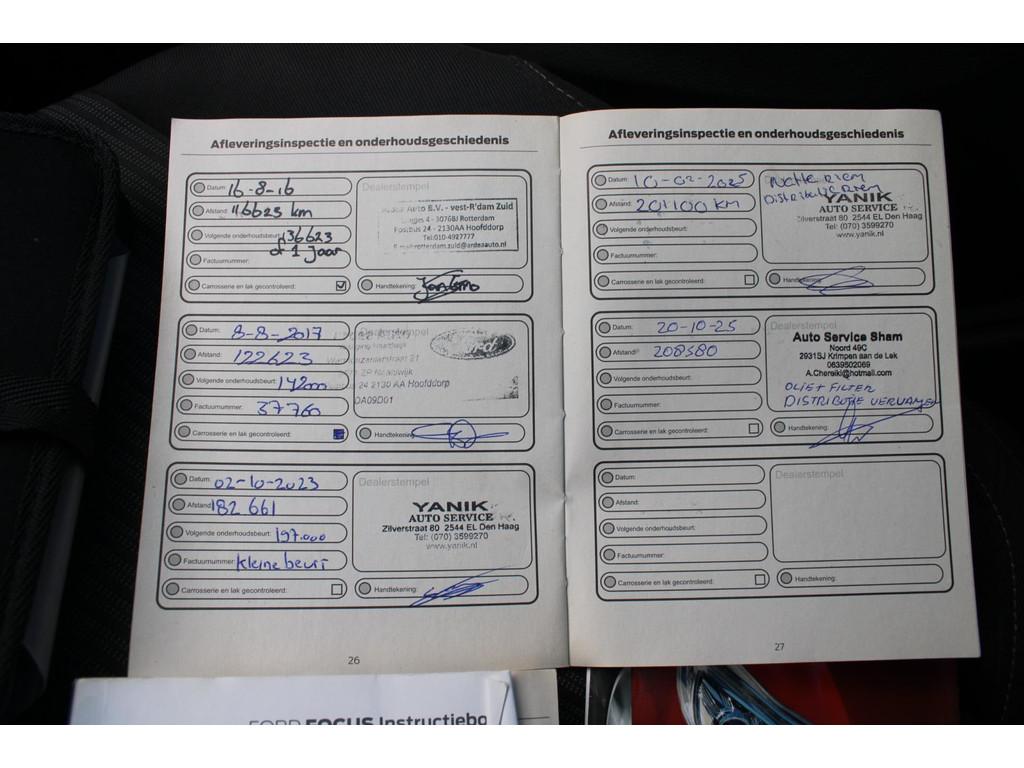 Afleveringsinspectie en onderhoudsgeschiedenis
Datum: 16-8-16
Afstand: 116623 km
Volgende onderhoudsbeurt: 136623
of 1 Jaar
Factuurnummer:
Carrosserie en lak gecontroleerd:
Dealerstempel
Auto B.V. - vest-R'dam Zuid
4 - 3076BJ Rotterdam
Postbus 24 - 2130AA Hoofddorp
Tel:010-4927777
E-mail:rotterdam.zuid@ardeaauto.nl
Handtekening:
Datum: 8-8-2017
Afstand: 122623
Volgende onderhoudsbeurt: 142m
Factuurnummer: 37760
Carrosserie en lak gecontroleerd:
Dealerstempel
Ford
21
24 2130 AA Hoofddorp
DA09D01
Handtekening:
Datum: 02-10-2023
Afstand: 182 661
Volgende onderhoudsbeurt: 197.000
Factuurnummer: kleine beurt
Carrosserie en lak gecontroleerd:
Dealerstempel
YANIK
AUTO SERVICE
Zilverstraat 80 2544 EL Den Haag
Tel: (070) 3599270
www.yanik.nl
Handtekening:
26
Afleveringsinspectie en onderhoudsgeschiedenis
Datum: 10-02-2025
Afstand: 201100 KM
Volgende onderhoudsbeurt:
Factuurnummer:
Carrosserie en lak gecontroleerd:
Riem
Distributie Riem
YANIK
AUTO SERVICE
Zilverstraat 80 2544 EL Den Haag
Tel: (070) 3599270
www.yanik.nl
Handtekening:
Datum: 20-10-25
Afstand: 208580
Volgende onderhoudsbeurt:
Factuurnummer:
Carrosserie en lak gecontroleerd:
Dealerstempel
Auto Service Sham
Noord 49C
2931SJ Krimpen aan de Lek
0639502069
A.Chereiki@hotmail.com
OLIE + FILTER
DISTRIBUTIE VERVANGEN
Handtekening:
Datum:
Afstand:
Volgende onderhoudsbeurt:
Factuurnummer:
Carrosserie en lak gecontroleerd:
Dealerstempel
Handtekening:
27
FORD FOCUS Instructiebo